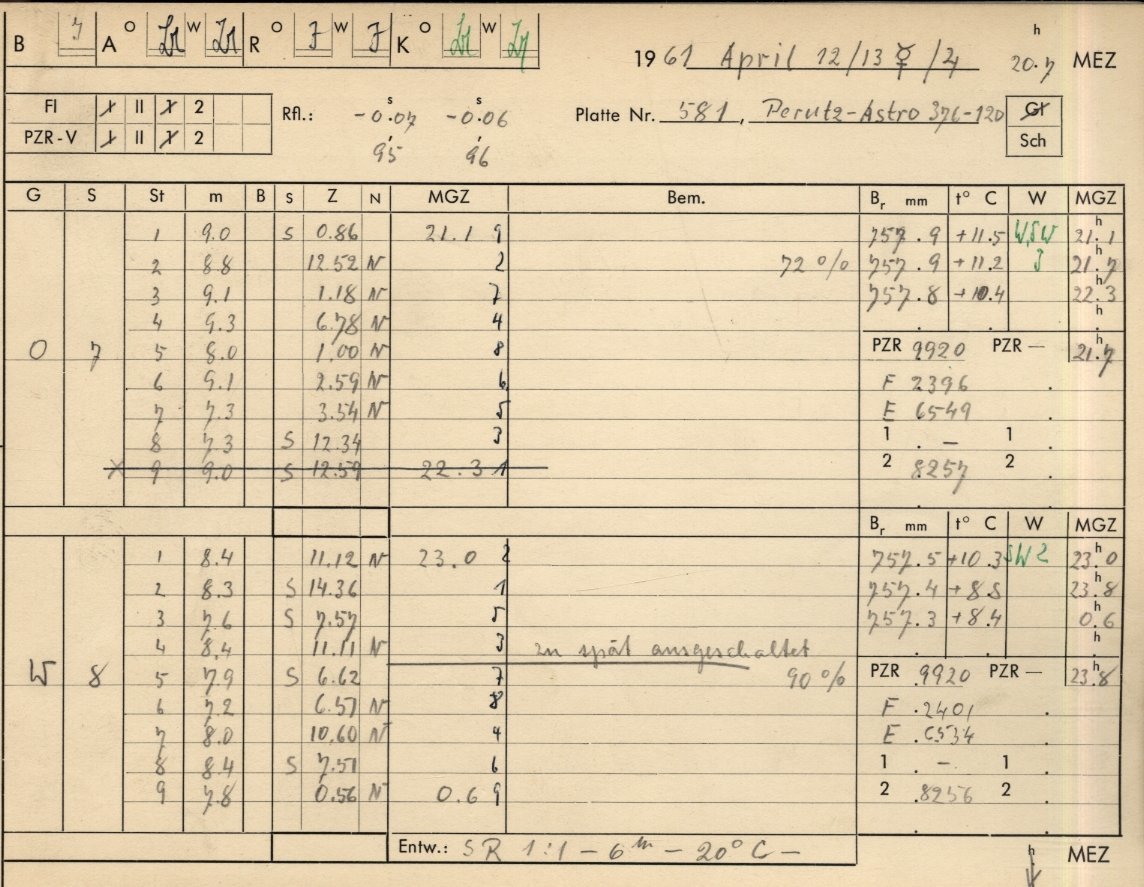 B 7 A O Lr W Lr R O F W F K O Lr W Lr
1961 April 12/13 ☿/♃ h 20.7 MEZ
FI 1 II 1 2 Rfl.: -0.07 s -0.06 s Platte Nr. 581, Perutz-Astro 376-120 Gl
PZR-V 1 II 1 2 95 96 Sch
G S St m B S Z N MGZ Bem. Br mm t° C W MGZ
1 9.0 S 0.86 21.1 9 757.9 +11.5 WSW 21.1 h
2 8.8 12.52 N 2 72 % 757.9 +11.2 3 21.7
3 9.1 1.18 N 7 757.8 +10.4 22.3 h
4 9.3 6.78 N 4 h
O 7 5 8.0 1.00 N 8 PZR 9920 PZR — 21.7
6 9.1 2.59 N 6 F 2396
7 7.3 3.54 N 5 E 6549
8 7.3 S 12.34 3 1 . – 1 .
X 9 9.0 S 12.59 22.3 1 2 8257 2
Br mm t° C W MGZ
1 8.4 11.12 N 23.0 2 757.5 +10.3 SW2 23.0 h
2 8.3 S 14.36 1 757.4 +8.8 23.8 h
3 7.6 S 7.57 5 757.3 +8.4 0.6 h
4 8.4 11.11 N 3 zu spät ausgeschaltet h
W 8 5 7.9 S 6.62 7 90 % PZR 9920 PZR — 23.8 h
6 7.2 6.57 N 8 F .2401 .
7 8.0 10.60 N 4 E .6534 .
8 8.4 S 7.51 6 1 . – 1 .
9 7.8 0.56 N 0.6 9 2 .8256 2 .
Entw.: SR 1:1 – 6 m – 20° C – h MEZ